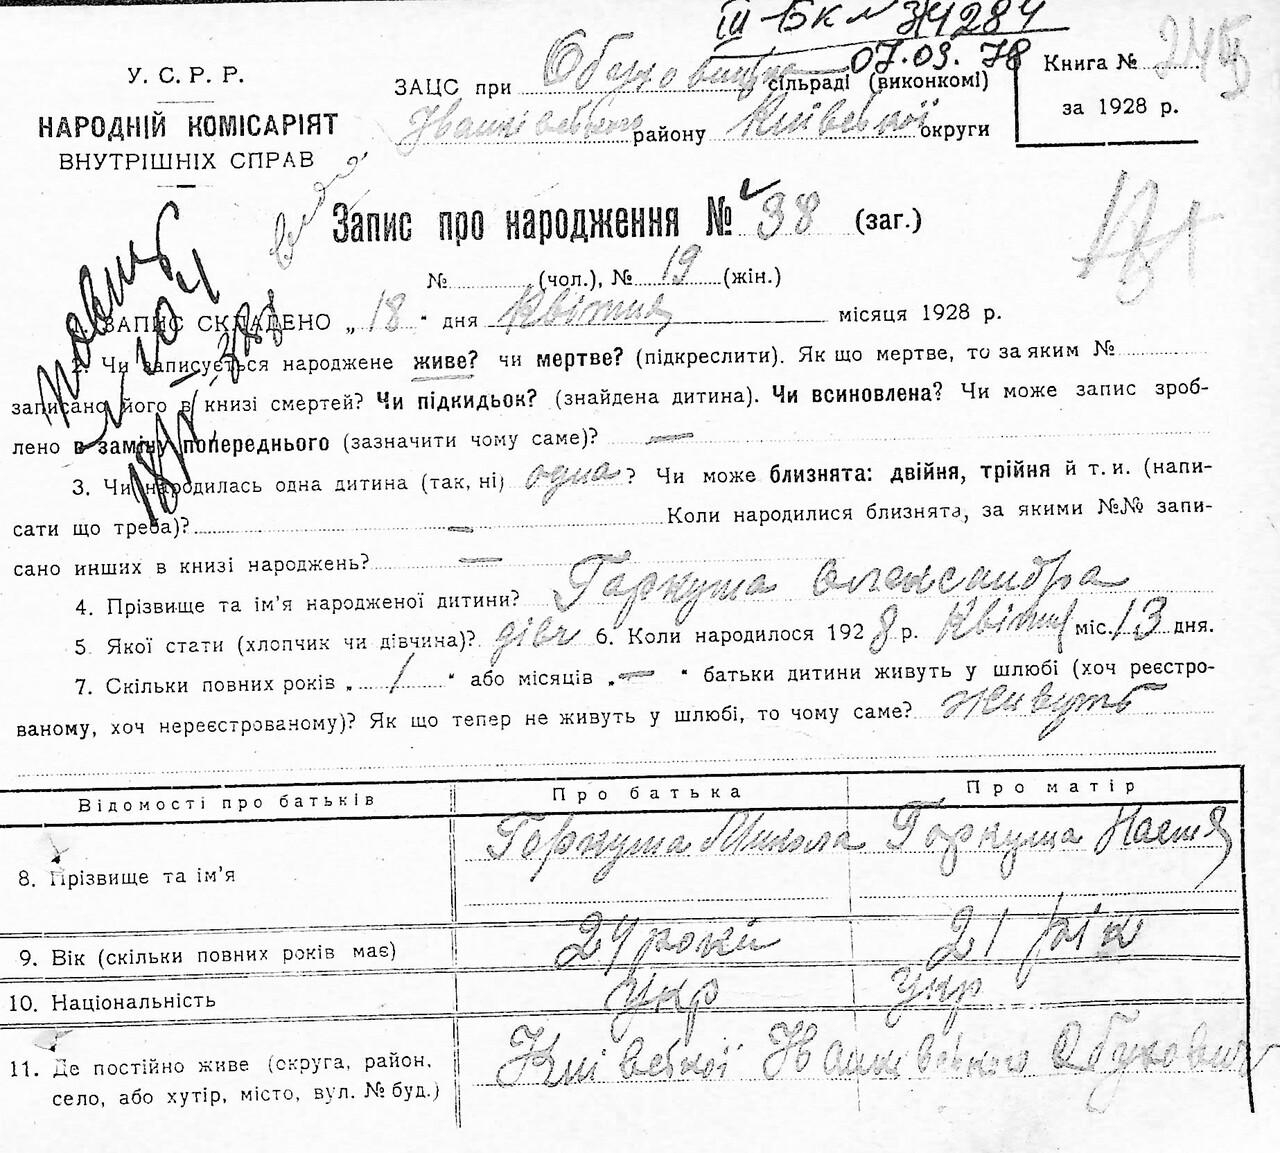 ІІІ-БК № 314284
07.03.78
У. С. Р. Р.
НАРОДНІЙ КОМІСАРІЯТ
ВНУТРІШНІХ СПРАВ
ЗАЦС при Обуховицька сільраді (виконкомі)
Іванківського району Київської округи
Книга №
за 1928 р.
Запис про народження № 38 (заг.)
№ (чол.), № 19 (жін.)
1. ЗАПИС СКЛАДЕНО „ 18 " дня Квітня місяця 1928 р.
2. Чи записується народжене живе? чи мертве? (підкреслити). Як що мертве, то за яким №
записано його в книзі смертей? Чи підкидьок? (знайдена дитина). Чи всиновлена? Чи може запис зроб-
лено в заміну попереднього (зазначити чому саме)? —
3. Чи народилась одна дитина (так, ні) одна? Чи може близнята: двійня, трійня й т. и. (напи-
сати що треба)? — Коли народилися близнята, за якими №№ запи-
сано инших в книзі народжень? —
4. Прізвище та ім'я народженої дитини? Горкуша Олександра
5. Якої стати (хлопчик чи дівчина)? дівч 6. Коли народилося 1928 р. Квітня міс. 13 дня.
7. Скільки повних років „ 1 " або місяців „ — " батьки дитини живуть у шлюбі (хоч реєстро-
ваному, хоч нереєстрованому)? Як що тепер не живуть у шлюбі, то чому саме? живуть
Відомості про батьків Про батька Про матір
8. Прізвище та ім'я Горкуша Микола Горкуша Настя
9. Вік (скільки повних років має) 24 роки 21 рік
10. Національність Укр Укр
11. Де постійно живе (округа, район,
село, або хутір, місто, вул. № буд.) Київської Іванківського Обуховичі